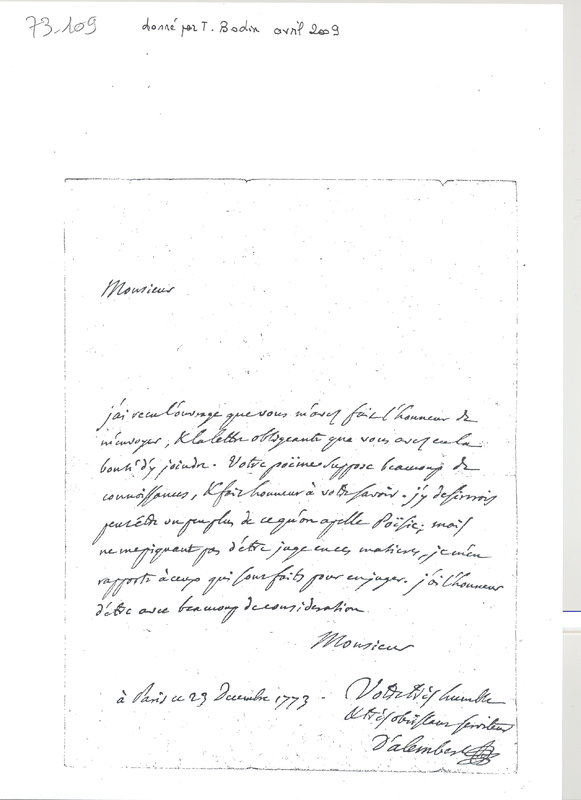 73-109 donné par T. Bodin avril 2009
Monsieur
j'ai recu l'ouvrage que vous m'avez fait l'honneur de
m'envoyer, & la lettre obligeante que vous avez eu la
bonté d'y joindre. Votre poëme suppose beaucoup de
connoissances, & fait honneur à votre savoir. j'y desirerois
peutêtre un peu plus de ce qu'on apelle Poësie; mais
ne me piquant pas d'être juge en ces matieres, je m'en
rapporte à ceux qui sont faits pour en juger. j'ai l'honneur
d'être avec beaucoup de consideration
Monsieur
à Paris ce 23 Decembre 1773. Votre très humble
& très obeissant serviteur
D'alembert